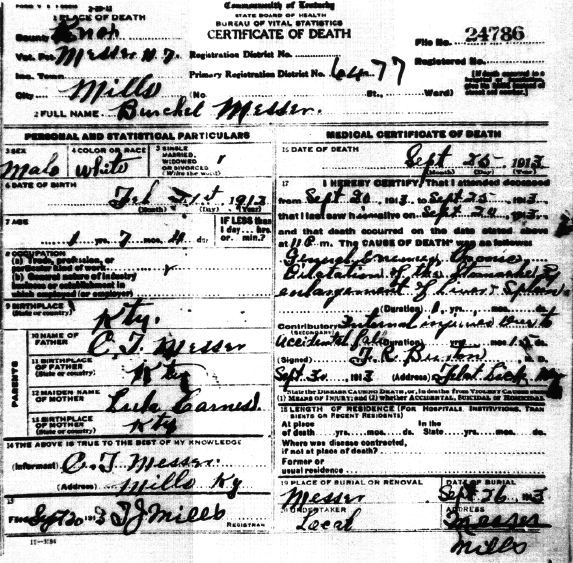 Commonwealth of Kentucky
STATE BOARD OF HEALTH
BUREAU OF VITAL STATISTICS
CERTIFICATE OF DEATH
1 PLACE OF DEATH
County Knox
Vot. Pct. Messer
Inc. Town
City Mills
Registration District No.
Primary Registration District No. 6477
(No St., Ward)
File No. 24786
Registered No.
2 FULL NAME Burchel Messer.
PERSONAL AND STATISTICAL PARTICULARS
3 SEX
Male
4 COLOR OR RACE
White
5 SINGLE
MARRIED,
WIDOWED
OR DIVORCED
(Write the word)
6 DATE OF BIRTH
Feb 21st, 1912
(Month) (Day) (Year)
7 AGE
1 yrs. 7 mos. 4 ds.
IF LESS than
1 day... hrs.
or... min.?
8 OCCUPATION
(a) Trade, profession, or
particular kind of work
(b) General nature of industry
business or establishment in
which employed (or employer)
9 BIRTHPLACE
(State or country)
Kty.
PARENTS
10 NAME OF
FATHER
C. T. Messer
11 BIRTHPLACE
OF FATHER
(State or country)
Kty
12 MAIDEN NAME
OF MOTHER
Carnes
13 BIRTHPLACE
OF MOTHER
(State or country)
Kty
14 THE ABOVE IS TRUE TO THE BEST OF MY KNOWLEDGE
(Informant) C. T. Messer.
(Address) Mills Ky
15
Filed Sept 30 1913 T J Mills
REGISTRAR
MEDICAL CERTIFICATE OF DEATH
16 DATE OF DEATH
Sept 25 1913
(Month) (Day) (Year)
17 I HEREBY CERTIFY, That I attended deceased
from Sept 20 1913 to Sept 25 1913
that I last saw him alive on Sept 24 1913
and that death occurred on the date stated above
at 11 P. m. The CAUSE OF DEATH* was as follows:
Dilatation of the Stomach
enlargement of liver & Spleen
(Duration) 1 yrs. mos. ds.
Contributory Internal injuries due to
(SECONDARY)
accidental fall
(Signed) F. R. Burton M. D.
Sept 30 1913 (Address) Flat Lick Ky
(1) MEANS OF INJURY; and (2) whether ACCIDENTAL, SUICIDAL or HOMICIDAL.
18 LENGTH OF RESIDENCE (FOR HOSPITALS, INSTITUTIONS, TRANSIENTS OR RECENT RESIDENTS)
At place
of death yrs. mos. ds.
In the
State yrs. mos. ds.
Where was disease contracted,
if not at place of death?
Former or
usual residence
19 PLACE OF BURIAL OR REMOVAL
Messer
DATE OF BURIAL
Sept 26 1913
20 UNDERTAKER
Local
ADDRESS
Messer
Mills